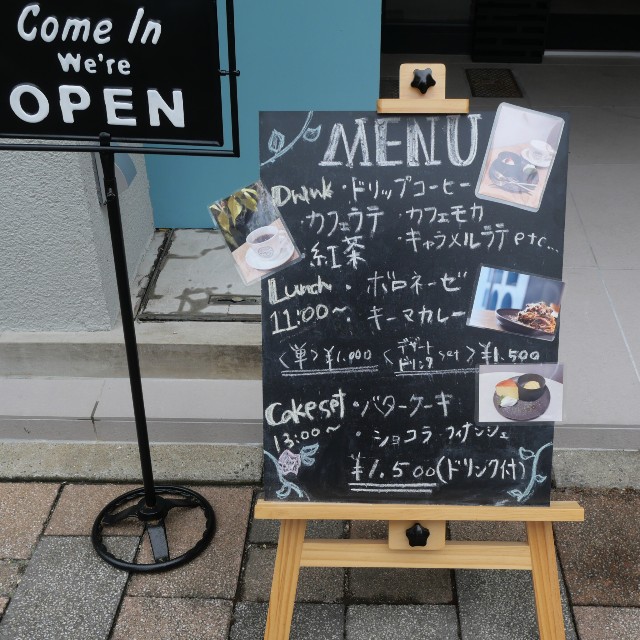 Come In
We're
OPEN
MENU
Drink・ドリップコーヒー
・カフェラテ ・カフェモカ
・紅茶 ・キャラメルラテ etc...
Lunch ・ボロネーゼ
11:00〜 ・キーマカレー
〈単〉¥1.000 〈デザートドリンク set〉¥1.500
Cake set ・バターケーキ
13:00〜 ・ショコラ フィナンシェ
¥1.500(ドリンク付)